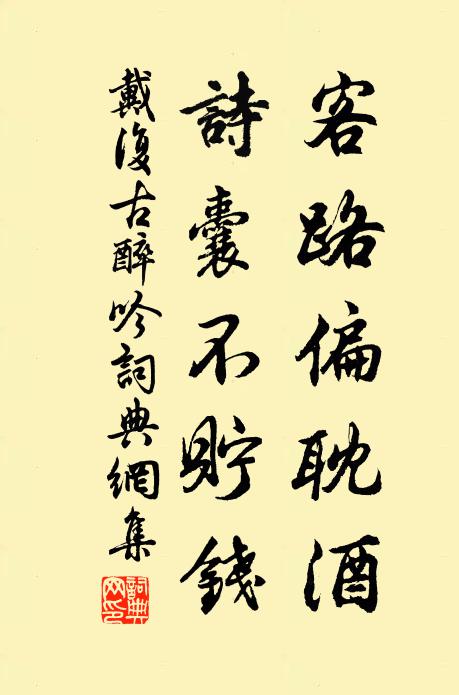 客路偏耽酒
詩囊不貯錢
戴復古醉吟詞典網集
詞典網印